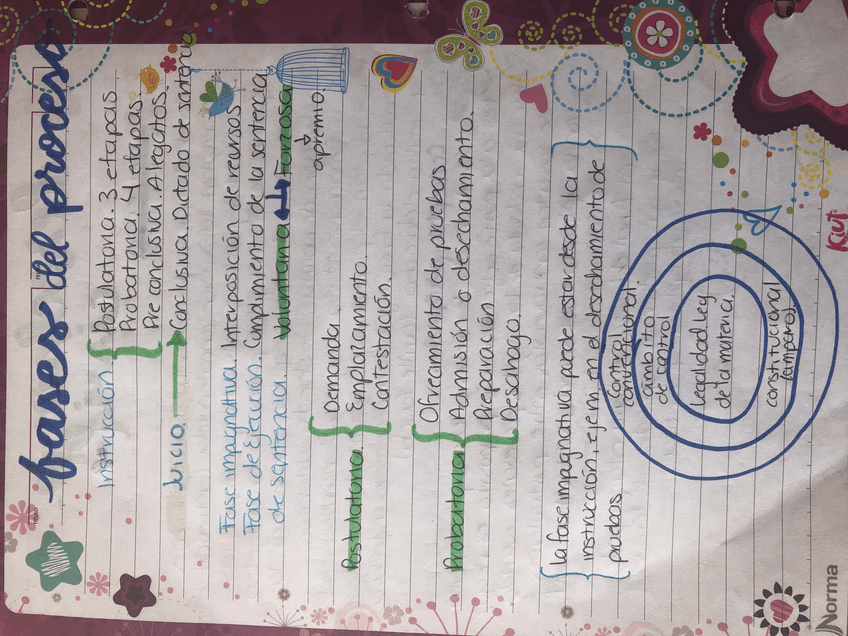 fases del proceso
Instrucción { Postulatoria. 3 etapas.
Probatoria. 4 etapas.
Pre conclusiva. Alegatos.
Juicio. → Conclusiva. Dictado de sentencia
Fase impugnativa. Interposición de recursos.
Fase de Ejecución. Cumplimiento de la sentencia
de sentencia. Voluntaria ↔ Forzosa
↓
apremio.
Postulatoria { Demanda.
Emplazamiento.
Contestación.
Probatoria { Ofrecimiento de pruebas
Admisión o desechamiento.
Preparación
Desahogo.
{ la fase impugnativa puede estar desde la }
instrucción, ejem. en el desechamiento de
pruebas.
Control
convencional.
ámbito
de control
legalidad ley
de la materia.
constitucional
(amparo).
Kiut
Norma